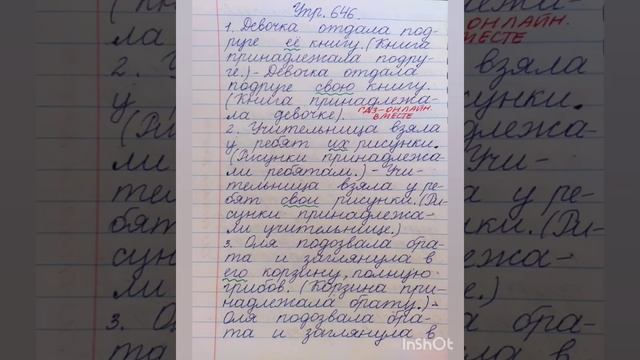 Упр. 646.
1. Девочка отдала под-
руге её книгу. (Книга
принадлежала подру-
ге.) - Девочка отдала
подруге свою книгу.
(Книга принадлежа-
ла девочке).
РАЗ-ОНЛАЙН.
ВМЕСТЕ
2. Учительница взяла
у ребят их рисунки.
(Рисунки принадлежа-
ли ребятам.) - Учи-
тельница взяла у ре-
бят свои рисунки. (Ри-
сунки принадлежа-
ли учительнице.)
3. Оля подозвала бра-
та и заглянула в
его корзину, полную
грибов. (Корзина при-
надлежала брату.) -
Оля подозвала бра-
та и заглянула в
InShOt